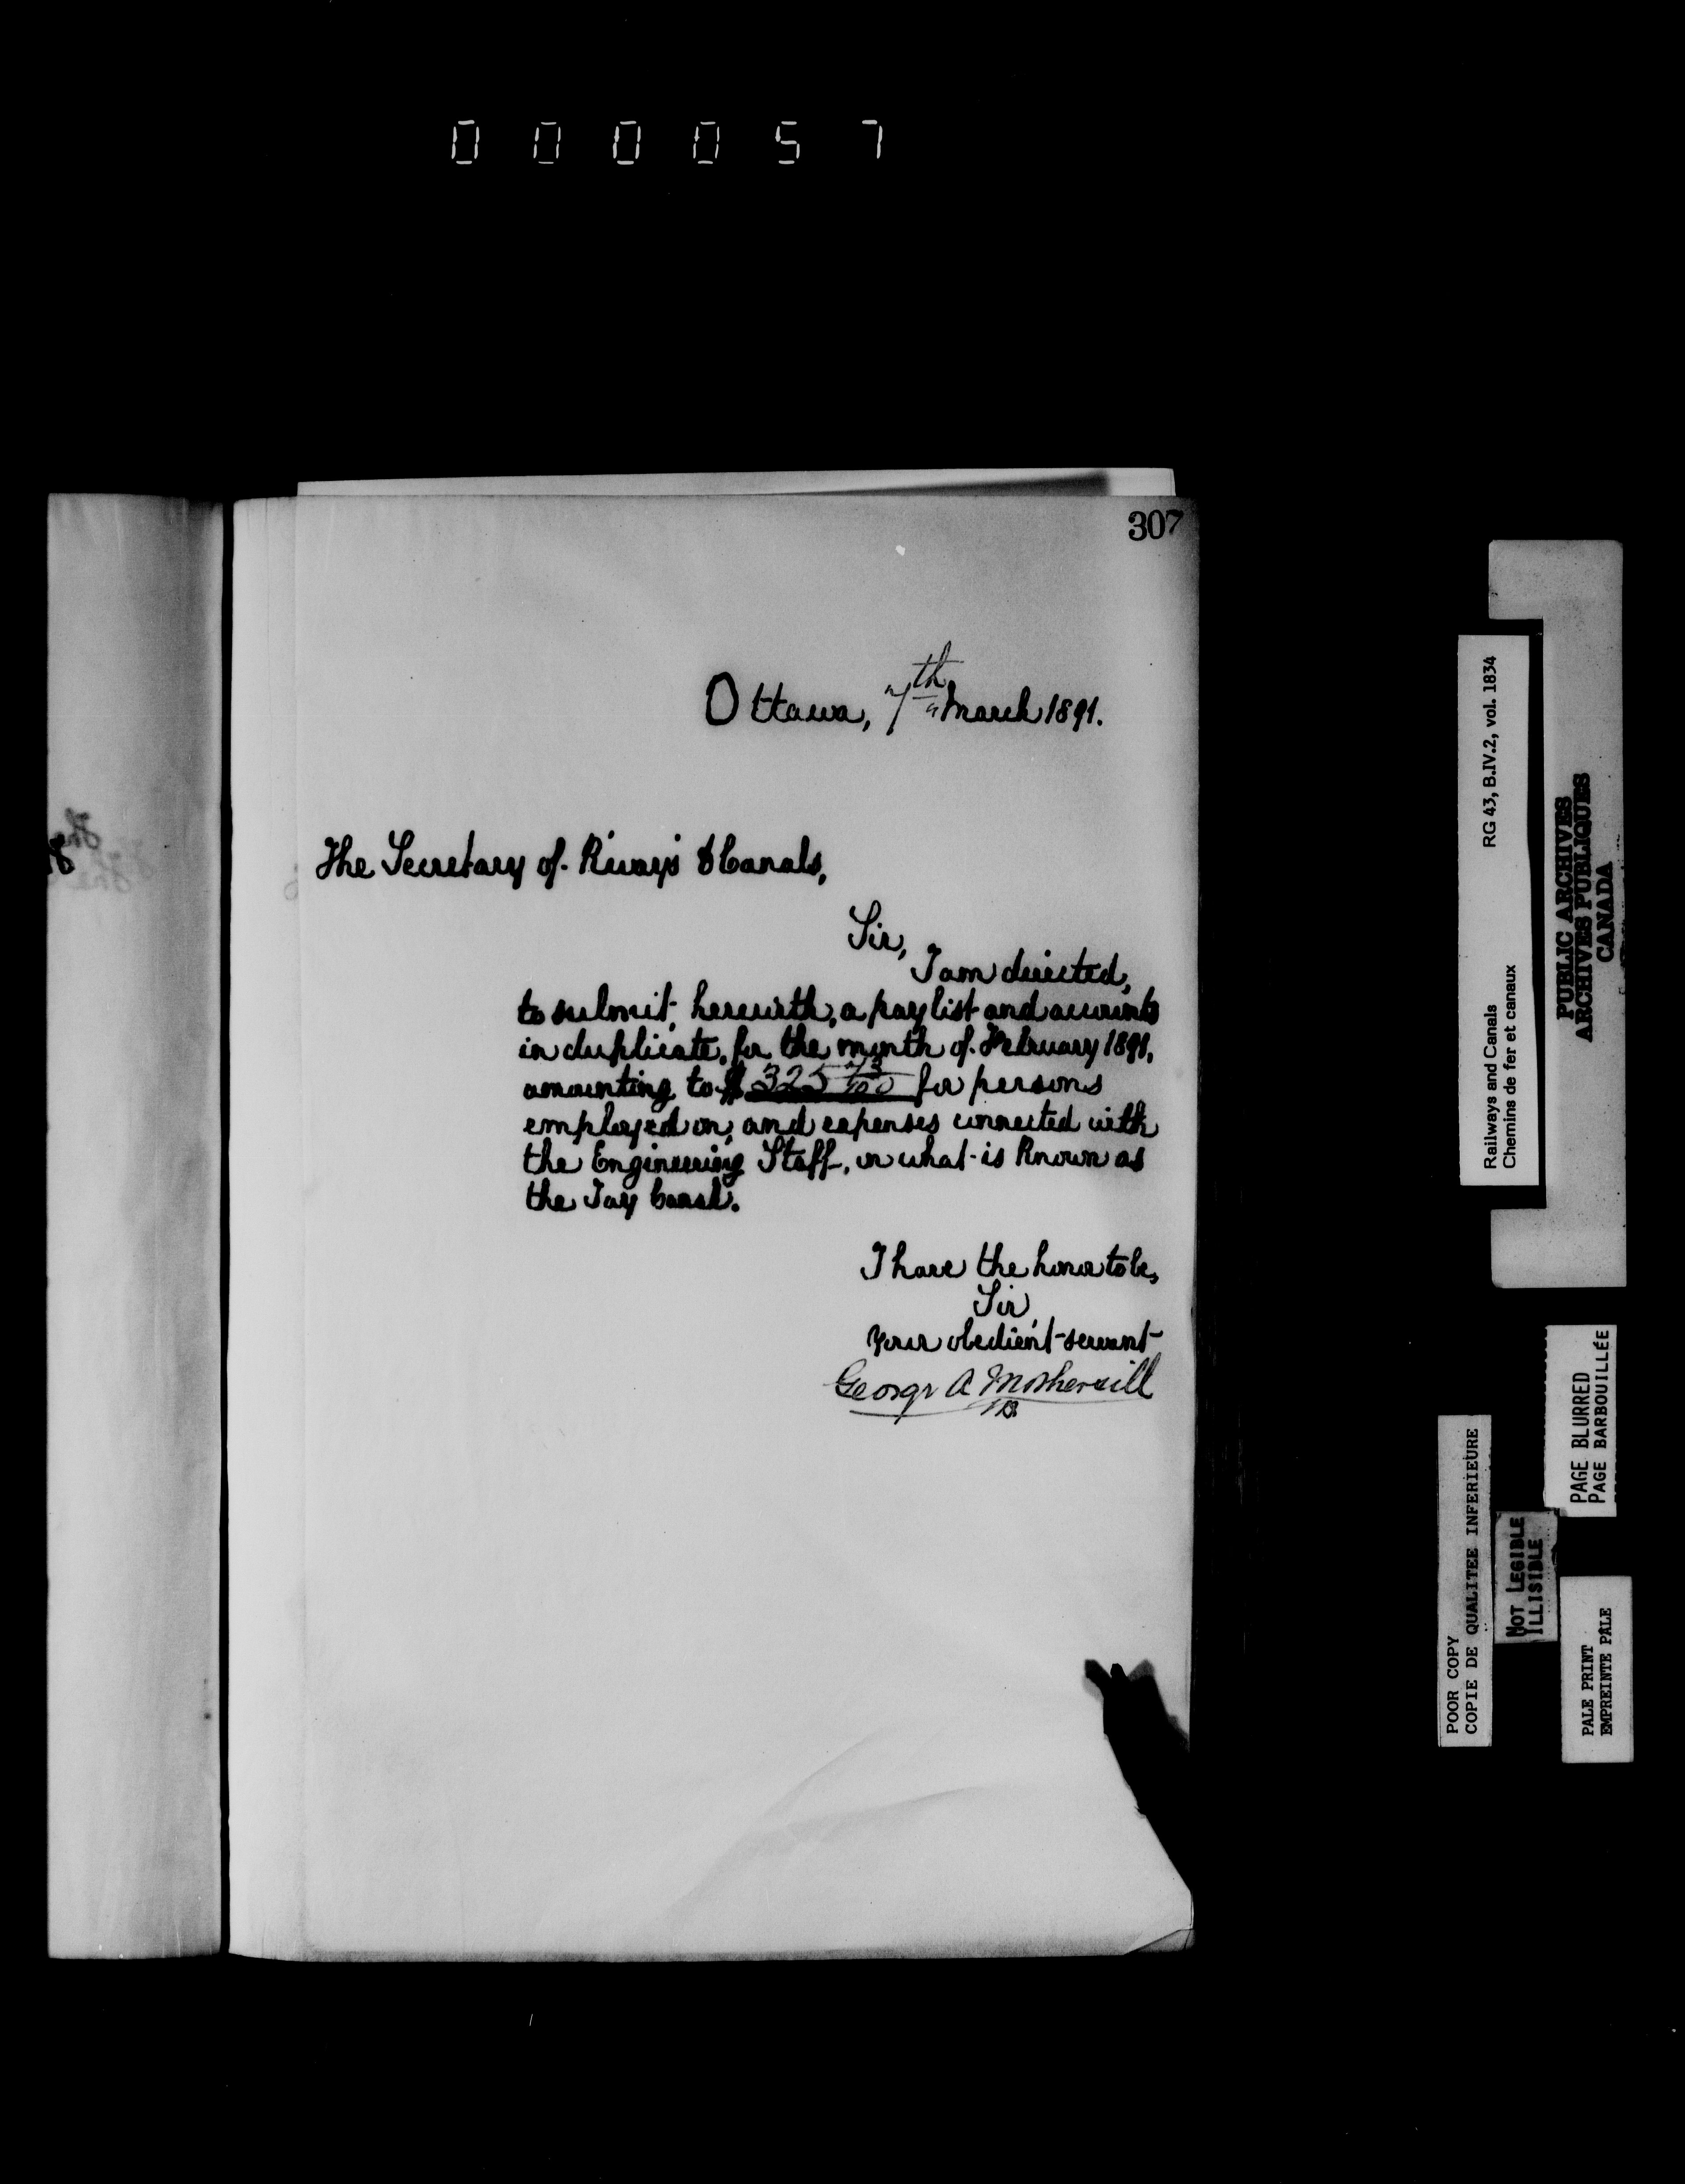 000057
307
Ottawa, 7th March 1891.
The Secretary of Rways & Canals,
Sir,
I am directed,
to submit, herewith, a pay list and accounts
in duplicate, for the month of February 1891,
amounting to $325 73/100 for persons
employed on, and expenses connected with
the Engineering Staff, on what is known as
the Tay Canal.
I have the honor to be,
Sir,
Your obedient servant
George A Mothersill
Railways and Canals RG 43, B.IV.2, vol. 1834
Chemins de fer et canaux
PUBLIC ARCHIVES
ARCHIVES PUBLIQUES
CANADA
PAGE BLURRED
PAGE BARBOUILLÉE
POOR COPY
COPIE DE QUALITEE INFERIEURE
NOT LEGIBLE
ILLISIBLE
PALE PRINT
EMPREINTE PÂLE